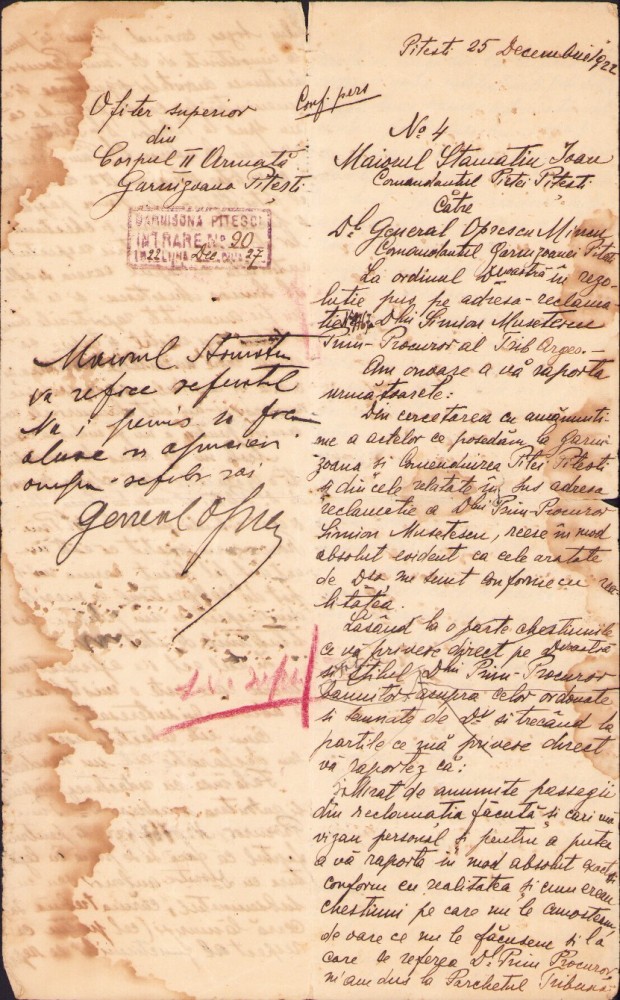 Pitesti 25 Decembrie 1922
Conf. pers
Ofiter superior
din
Corpul II Armată
Garnizoana Pitesti
GARNISONA PITESCI
INTRARE No 20
22 LUNA Dec. ZIUA 27
No 4
Maiorul Stamatin Ioan
Comandantul Pietei Pitesti
Către
Dl General Oprescu
Comandantul Garnizoanei
La ordinul Dvoastră în rezo-
lutie pus pe adresa-reclama-
tie Dlui Simion Musetescu
Prim-Procuror al Trib Arges.-
Am onoare a vă raporta
următoarele:
Din cercetarea cu amănunti-
me a actelor ce posedăm la Garni-
zoana si Comenduirea Pietei Pitesti
si din cele relatate în sus adresa
reclamatie a Dlui Prim-Procuror
Simion Musetescu, reese în mod
absolut evident ca cele aratate
de Dsa nu sunt conforme cu rea-
litatea.
Lăsând la o parte chestiunile
ce vă privesc direct pe Dvoastră
si Dlui Prim-Procuror
asupra celor ordonate
si semnate de Dv si trecând la
partile ce mă privesc direct
vă raportez că:
Mirat de anumite passegii
din reclamatia făcută si cari mă
vizau personal si pentru a putea
a vă raporta în mod absolut exact si
conform cu realitatea si cum erau
chestiuni pe care nu le cunosteam,
de oare ce nu le făcusem si la
care se referea Dl Prim Procuror
m'am dus la Parchetul Tribuna-
Maiorul Stamatin
va reface referatul
Nu-i permis să facă
aluzii si aprecieri
asupra sefilor săi
General